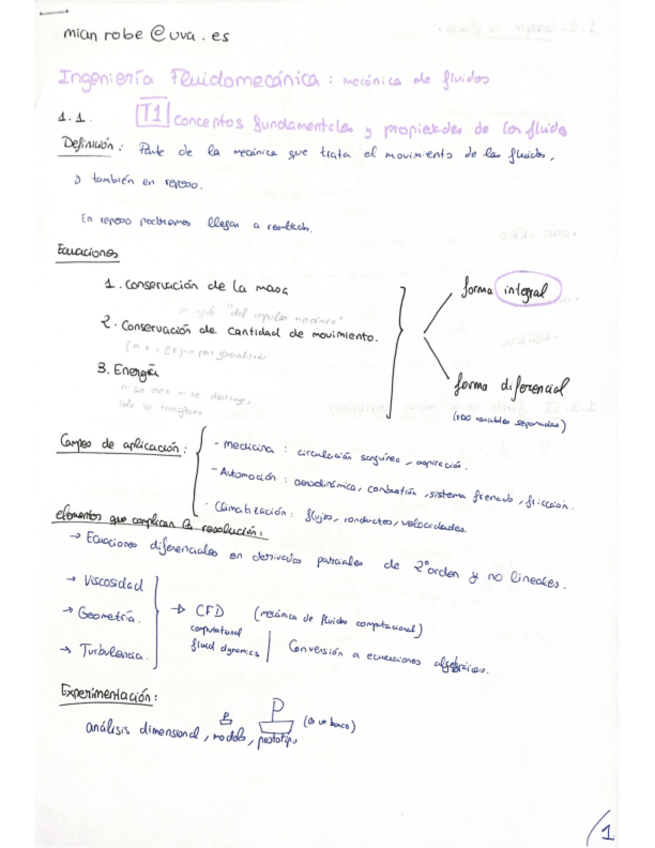 mianrobe@uva.es
Ingeniería Fluidomecánica: mecánica de fluidos
1.1. T1 Conceptos fundamentales y propiedades de los fluidos
Definición: Parte de la mecánica que trata el movimiento de los fluidos,
y también en reposo.
En reposo podríamos llegar a
Ecuaciones
1. Conservación de la masa
forma integral
"del impulso mecánico"
2. Conservación de cantidad de movimiento.
3. Energía
forma diferencial
ni se crea ni se destruye,
solo se transforma
(100 variables separadas)
Campos de aplicación:
- medicina: circulación sanguínea, aspiración.
- Automoción: aerodinámica, combustión, sistema frenado, fricción.
- Climatización: flujos, conductos, velocidades.
elementos que complican la resolución:
→ Ecuaciones diferenciales en derivadas parciales de 2º orden y no lineales.
→ Viscosidad
→ Geometría.
→ CFD (mecánica de fluidos computacional)
computational
fluid dynamics
Conversión a ecuaciones algebraicas.
→ Turbulencia.
Experimentación:
análisis dimensional, modelo, prototipo (de un barco)
/1